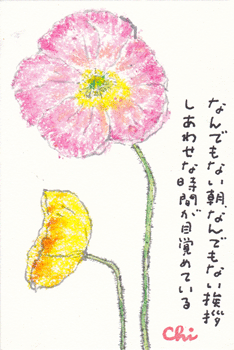 なんでもない朝、なんでもない挨拶
しあわせな時間が目覚めている
Chi